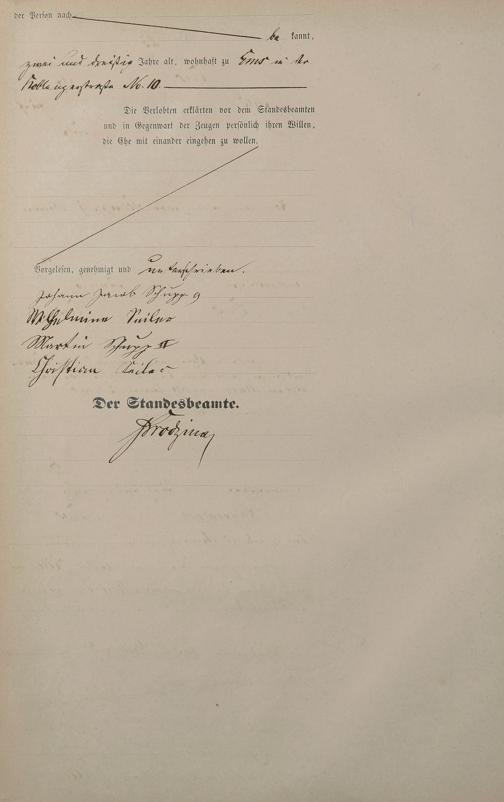 der Person nach
be kannt,
zwei und dreißig Jahre alt, wohnhaft zu Ems in der
No. 10
Die Verlobten erklärten vor dem Standesbeamten
und in Gegenwart der Zeugen persönlich ihren Willen,
die Ehe mit einander eingehen zu wollen.
Vorgelesen, genehmigt und unterschrieben.
Johann Jacob Schupp
Wilhelmine Seiler
Martin Schupp II
Christian Seiler
Der Standesbeamte.